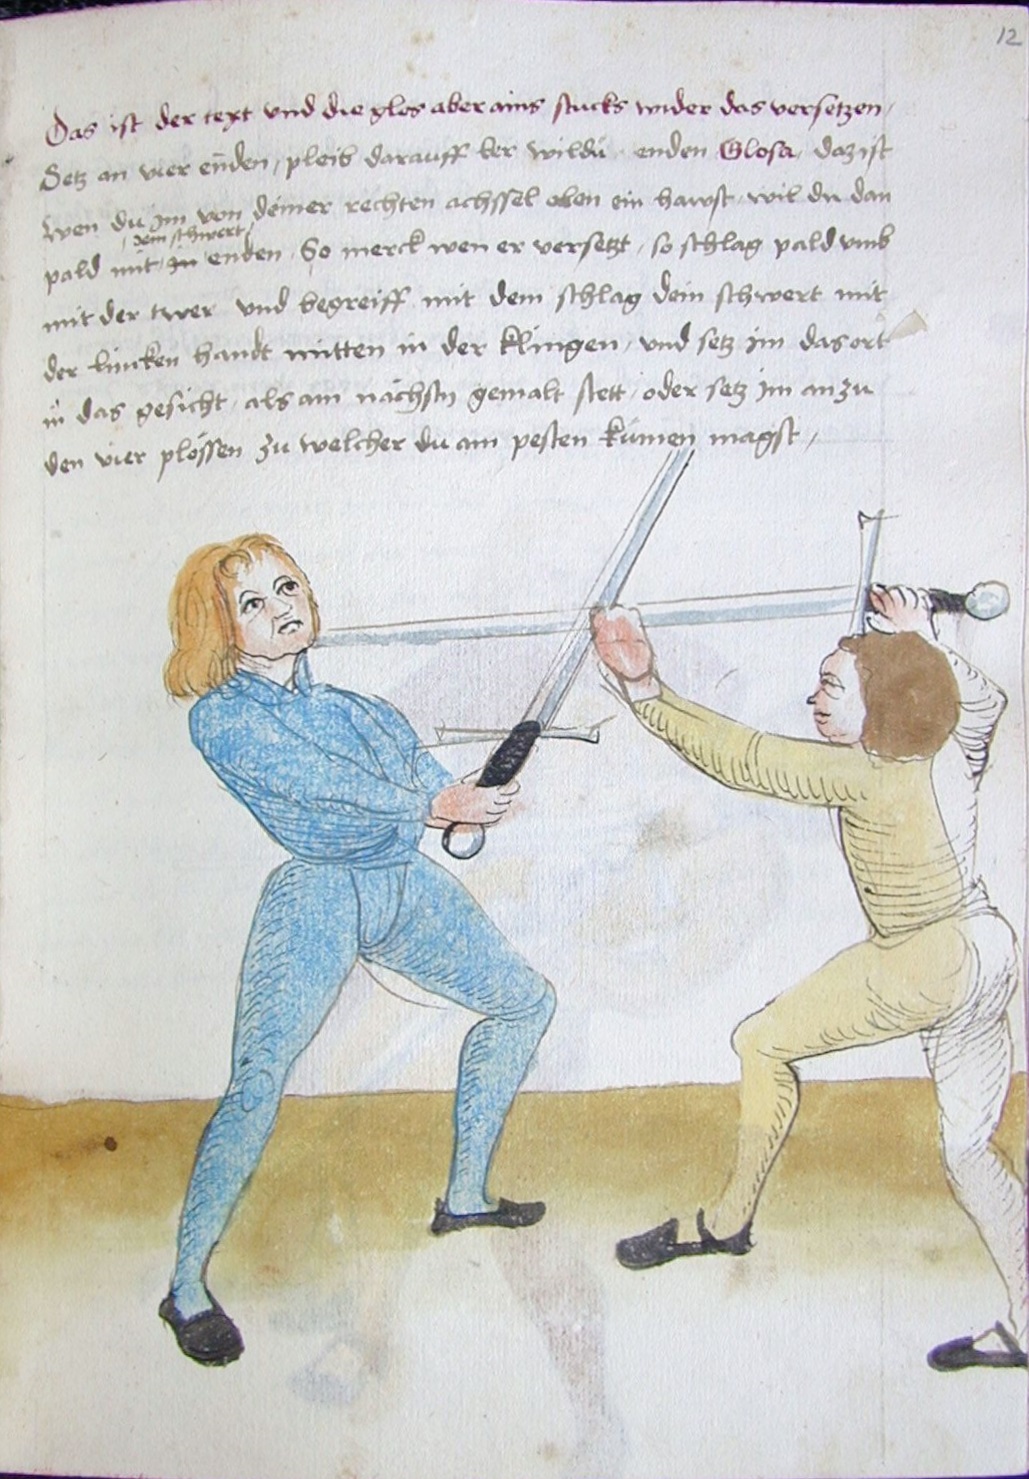 12
Das ist der text vnd die glos aber ains stucks wider das versetzen /
Setz an vier enden / pleib darauff ler wildu enden Glosa / daz ist
wen du im von deiner rechten achssel oben ein hawst / wil du dan
dem schwert
pald mit in enden / So merck wen er versetzt / so schlag pald vmb
mit der twer vnd begreiff mit dem schlag dein schwert mit
der lincken handt mitten in der klingen / vnd setz im das ort
in das gesicht / als am nächstn gemalt stett / oder setz im an zu
den vier plössen zu welcher du am pesten kümen magst /